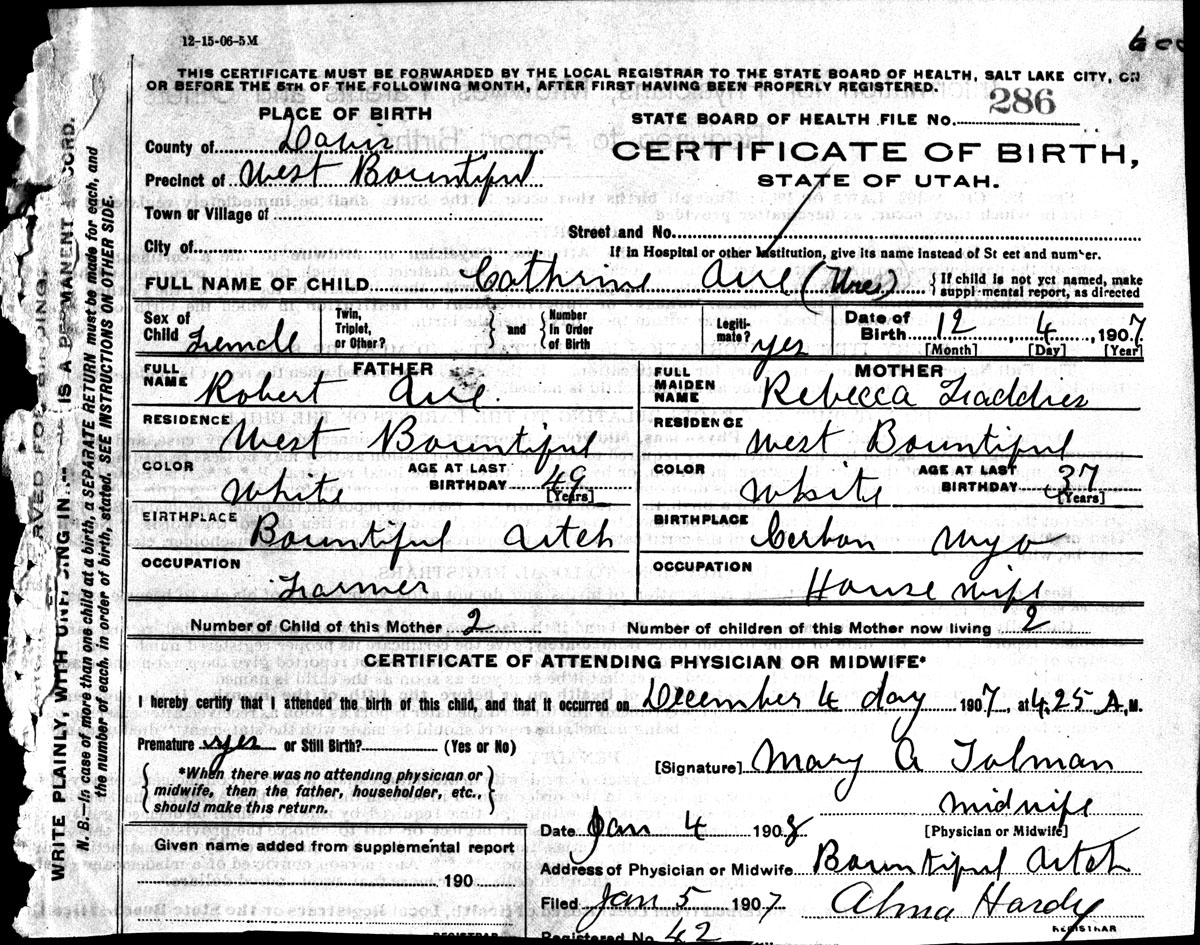 12-15-06-5M
THIS CERTIFICATE MUST BE FORWARDED BY THE LOCAL REGISTRAR TO THE STATE BOARD OF HEALTH, SALT LAKE CITY, ON
OR BEFORE THE 5TH OF THE FOLLOWING MONTH, AFTER FIRST HAVING BEEN PROPERLY REGISTERED.
PLACE OF BIRTH
STATE BOARD OF HEALTH FILE NO. 286
County of Davis
CERTIFICATE OF BIRTH,
Precinct of West Bountiful
STATE OF UTAH.
Town or Village of
Street and No.
City of
If in Hospital or other Institution, give its name instead of St eet and number.
FULL NAME OF CHILD Cathrine Aure (Ures) {If child is not yet named, make
suppl-mental report, as directed
Sex of Child Femele Twin, Triplet, or Other? } and { Number In Order of Birth Legiti-mate? yes Date of Birth 12, 4, 1907
[Month] [Day] [Year]
FATHER
FULL NAME Robert Aure.
RESIDENCE West Bountiful
COLOR White AGE AT LAST BIRTHDAY 49
[Years]
BIRTHPLACE Bountiful Utch
OCCUPATION Farmer
MOTHER
FULL MAIDEN NAME Rebecca Faddies
RESIDENCE West Bountiful
COLOR White AGE AT LAST BIRTHDAY 37
[Years]
BIRTHPLACE Cerbon Wyo
OCCUPATION House wife
Number of Child of this Mother 2 Number of children of this Mother now living 2
CERTIFICATE OF ATTENDING PHYSICIAN OR MIDWIFE*
I hereby certify that I attended the birth of this child, and that it occurred on December 4 day 1907, at 4.25 A.M.
Premature yes or Still Birth? (Yes or No)
[Signature] Mary A Tolman
{ *When there was no attending physician or
midwife, then the father, householder, etc.,
should make this return. }
midwife
[Physician or Midwife]
Date Jan 4 1908
Given name added from supplemental report
190
Address of Physician or Midwife Bountiful Utch
Filed Jan 5 1907 Alma Hardy
REGISTRAR
REGISTRAR
Registered No. 42
WRITE PLAINLY, WITH UNFADING IN... IS A PERMANENT RECORD.
N. B.—In case of more than one child at a birth, a SEPARATE RETURN must be made for each, and
the number of each, in order of birth, stated. SEE INSTRUCTIONS ON OTHER SIDE.